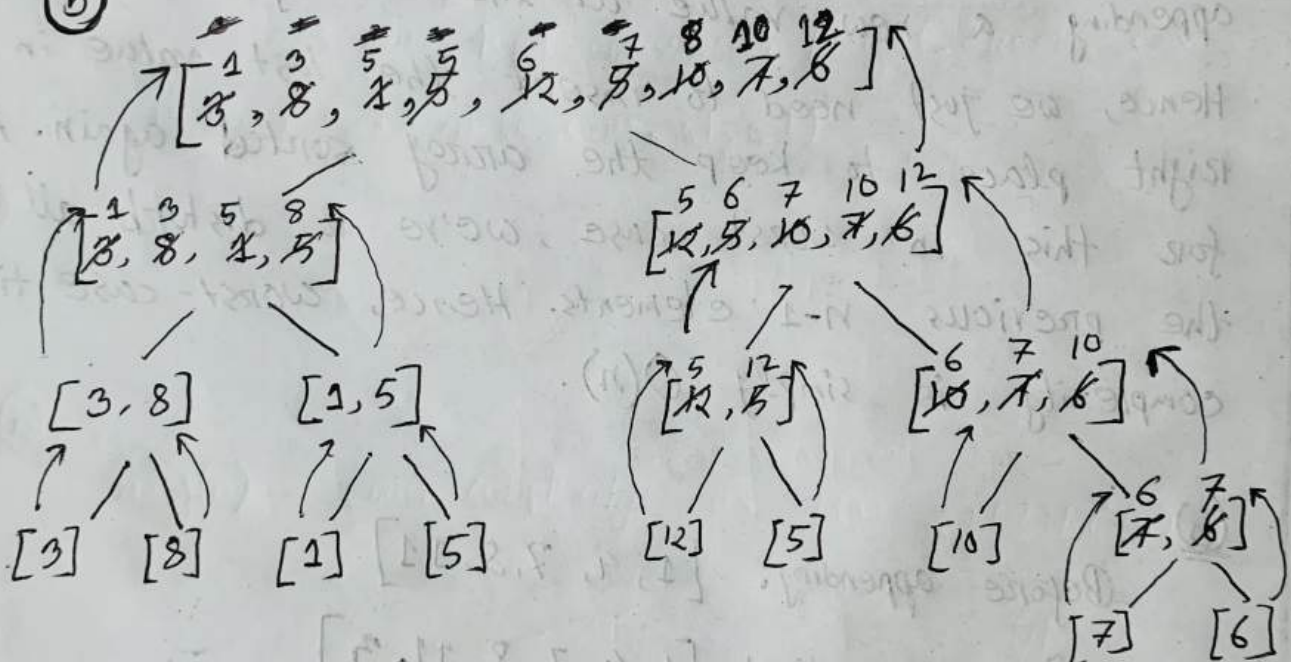 b
1 3 5 5 6 7 8 10 12
[3, 8, 1, 5, 12, 5, 10, 7, 6]
1 3 5 8
[3, 8, 1, 5]
5 6 7 10 12
[12, 5, 10, 7, 6]
[3, 8]
[1, 5]
5 12
[12, 5]
6 7 10
[10, 7, 6]
[3]
[8]
[1]
[5]
[12]
[5]
[10]
6 7
[7, 6]
[7]
[6]